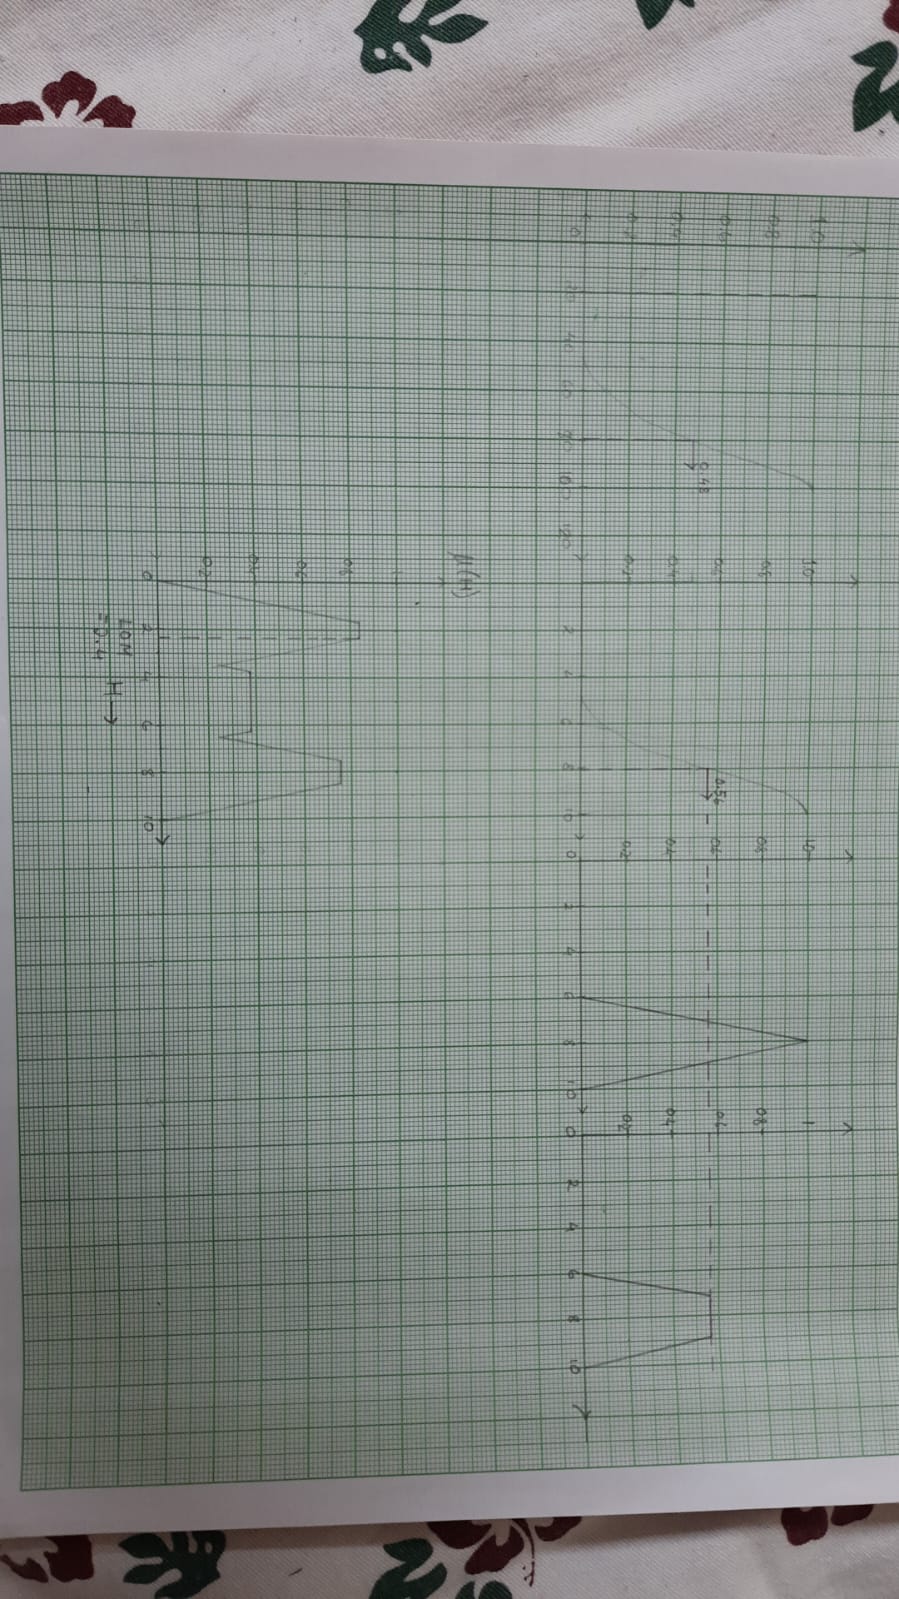 1.0
0.8
0.6
0.4
0.2
0 20 40 60 80 100 120
0.48
1.0
0.8
0.6
0.4
0.2
2 4 6 8 10
0.56
1.0
0.8
0.6
0.4
0.2
0 2 4 6 8 10
1
0.8
0.6
0.4
0.2
0 2 4 6 8 10
μ(H)
1
0.8
0.6
0.4
0.2
0 2 4 6 8 10
LOM
=2.4
H→